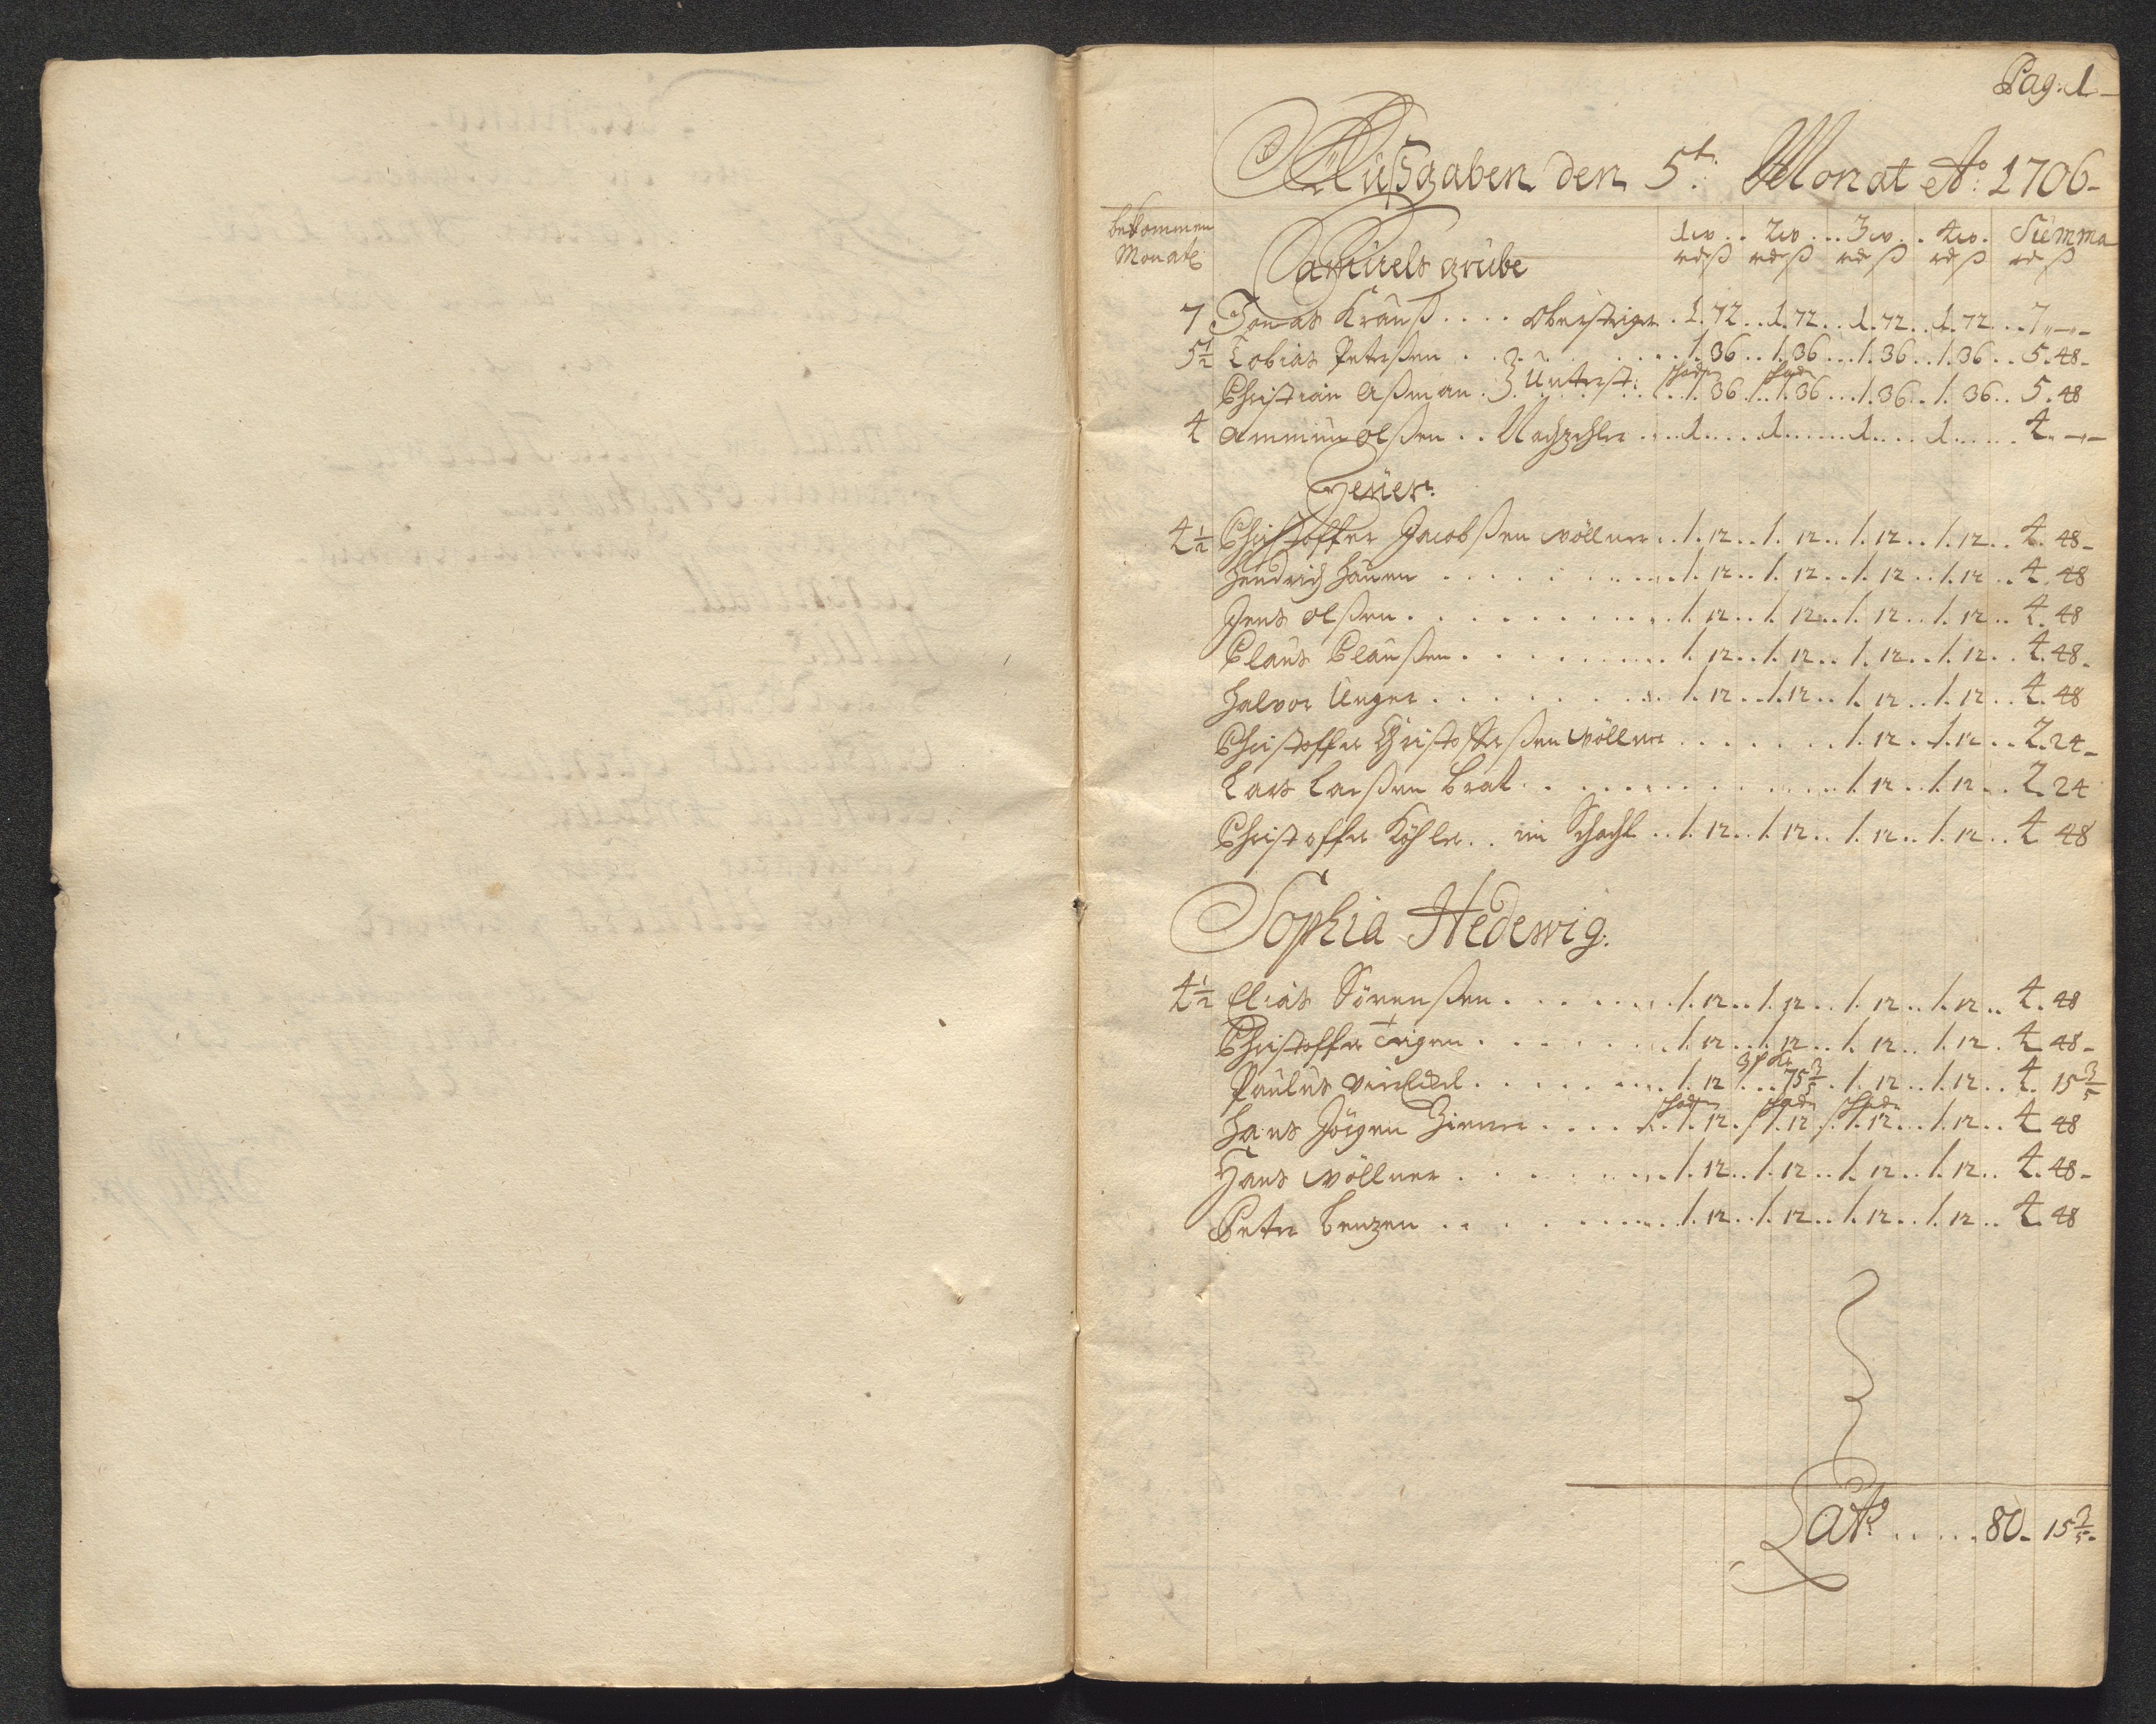 Pag: 1
Außgaben den 5t: Monat Ao: 1706
bekommen
Monatl:
1w .. 2w ... 3w .. 4w. Summa
rd ß rd ß rd ß rd ß rd ß
Samuels grube
7 Jonas Krauß .... Obersteiger . 1.72 .. 1.72 .. 1.72 .. 1.72 ... 7 „ — „ —
5½ Tobias Peterßen . . . . . 1.36 .. 1.36 ... 1.36 .. 1.36 .. 5.48
Christian Aßman . } Unterst: . . 1.36 ... 1.36 ... 1.36 .. 1.36 .. 5.48
4 Ammun Olßen .. Nachzehler ... 1 .... 1 ...... 1 .... 1 ..... 4. — „ —
Heüer:
4½ Christoffer Jacobßen Völlner .. 1.12 .. 1.12 .. 1.12 .. 1.12 .. 4.48
Hendrich Hauen . . . . . 1.12 .. 1.12 .. 1.12 .. 1.12 .. 4.48
Jens Olßen . . . . . 1.12 .. 1.12 .. 1.12 .. 1.12 .. 4.48
Claus Claußen . . . . . 1.12 .. 1.12 .. 1.12 .. 1.12 .. 4.48
Halvor Unger . . . . . 1.12 .. 1.12 .. 1.12 .. 1.12 .. 4.48
Christoffer Christofferßen Völlner . . . . . 1.12 .. 1.12 .. 2.24
Lars Larßen Brat . . . . . 1.12 .. 1.12 .. 2.24
Christoffer Köhler .. im Schacht .. 1.12 .. 1.12 .. 1.12 .. 1.12 .. 4 48
Sophia Hedewig:
4½ Elias Sörenßen . . . . . 1.12 .. 1.12 .. 1.12 .. 1.12 .. 4.48
Christoffer . . . . . 1.12 .. 1.12 .. 1.12 .. 1.12 . 4 48
Paulus . . . . . 1.12 ... 75 3/5 . 1.12 .. 1.12 .. 4. 15 3/5
Hans Jörgen . . . . 1.12 . 1.12 . 1.12 .. 1.12 .. 4 48
Hans Völlner . . . . . 1.12 .. 1.12 .. 1.12 .. 1.12 .. 4.48
Peter Benzen . . . . . 1.12 .. 1.12 .. 1.12 .. 1.12 .. 4.48
Lato ..... 80 - 15 3/5